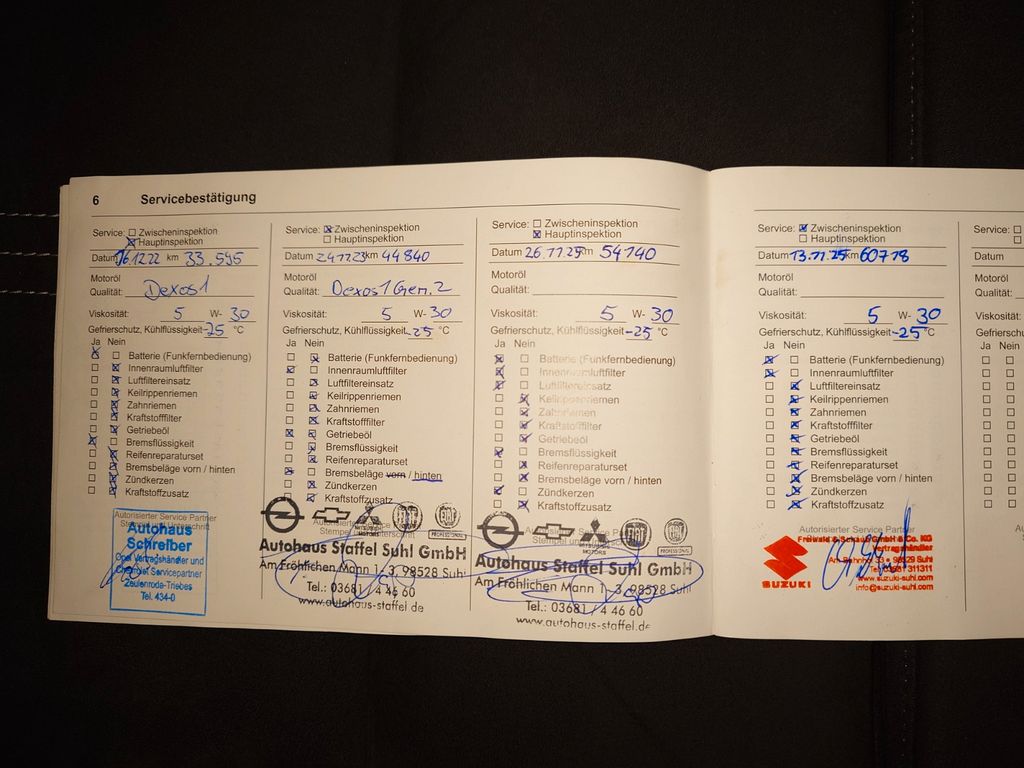 6 Servicebestätigung
Service: Zwischeninspektion
Hauptinspektion
Datum 16.12.22 km 33.595
Motoröl
Qualität: Dexos1
Viskosität: 5 W- 30
Gefrierschutz, Kühlflüssigkeit -25 °C
Ja Nein
Batterie (Funkfernbedienung)
Innenraumluftfilter
Luftfiltereinsatz
Keilrippenriemen
Zahnriemen
Kraftstofffilter
Getriebeöl
Bremsflüssigkeit
Reifenreparaturset
Bremsbeläge vorn / hinten
Zündkerzen
Kraftstoffzusatz
Autorisierter Service Partner
Autohaus
Schreiber
Opel Vertragshändler und
Chevrolet Servicepartner
Zeulenroda-Triebes
Tel. 434-0
Service: Zwischeninspektion
Hauptinspektion
Datum km 44840
Motoröl
Qualität: Dexos1 Gen.2
Viskosität: 5 W- 30
Gefrierschutz, Kühlflüssigkeit -25 °C
Ja Nein
Batterie (Funkfernbedienung)
Innenraumluftfilter
Luftfiltereinsatz
Keilrippenriemen
Zahnriemen
Kraftstofffilter
Getriebeöl
Bremsflüssigkeit
Reifenreparaturset
Bremsbeläge vorn / hinten
Zündkerzen
Kraftstoffzusatz
Autohaus Staffel Suhl GmbH
Am Fröhlichen Mann 1-3, 98528 Suhl
Tel.: 03681 / 4 46 60
www.autohaus-staffel.de
Service: Zwischeninspektion
Hauptinspektion
Datum km 54140
Motoröl
Qualität:
Viskosität: 5 W- 30
Gefrierschutz, Kühlflüssigkeit -25 °C
Ja Nein
Batterie (Funkfernbedienung)
Innenraumluftfilter
Luftfiltereinsatz
Keilrippenriemen
Zahnriemen
Kraftstofffilter
Getriebeöl
Bremsflüssigkeit
Reifenreparaturset
Bremsbeläge vorn / hinten
Zündkerzen
Kraftstoffzusatz
Autohaus Staffel Suhl GmbH
Am Fröhlichen Mann 1-3, 98528 Suhl
Tel.: 03681 / 4 46 60
www.autohaus-staffel.de
Service: Zwischeninspektion
Hauptinspektion
Datum 13.11.25 km 60718
Motoröl
Qualität:
Viskosität: 5 W- 30
Gefrierschutz, Kühlflüssigkeit -25 °C
Ja Nein
Batterie (Funkfernbedienung)
Innenraumluftfilter
Luftfiltereinsatz
Keilrippenriemen
Zahnriemen
Kraftstofffilter
Getriebeöl
Bremsflüssigkeit
Reifenreparaturset
Bremsbeläge vorn / hinten
Zündkerzen
Kraftstoffzusatz
Autorisierter Service Partner
GmbH & Co. KG
Vertragshändler
98529 Suhl
SUZUKI
www.suzuki-suhl.com
info@suzuki-suhl.com
Service:
Datum
Motoröl
Qualität:
Viskosität:
Gefrierschutz
Ja Nein